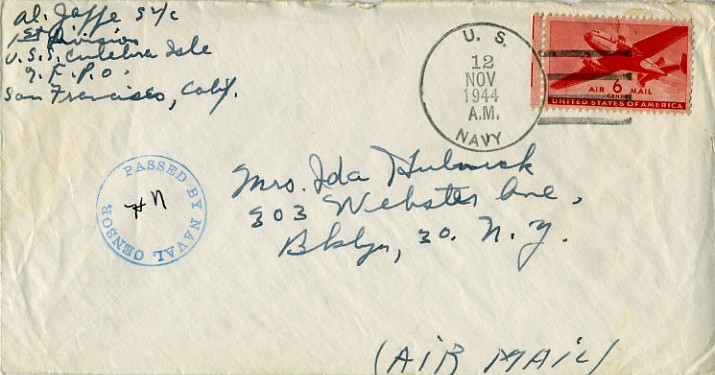 Al. Jaffe S 1/c
1st Division
U.S.S. Culebra Isle
℅ F.P.O.
San Francisco, Calif.
U. S.
12
NOV
1944
A.M.
NAVY
AIR 6 MAIL
CENTS
UNITED STATES OF AMERICA
PASSED BY NAVAL CENSOR
Mrs. Ida
303 Webster Ave,
Bklyn, 30. N.Y.
(AIR MAIL)